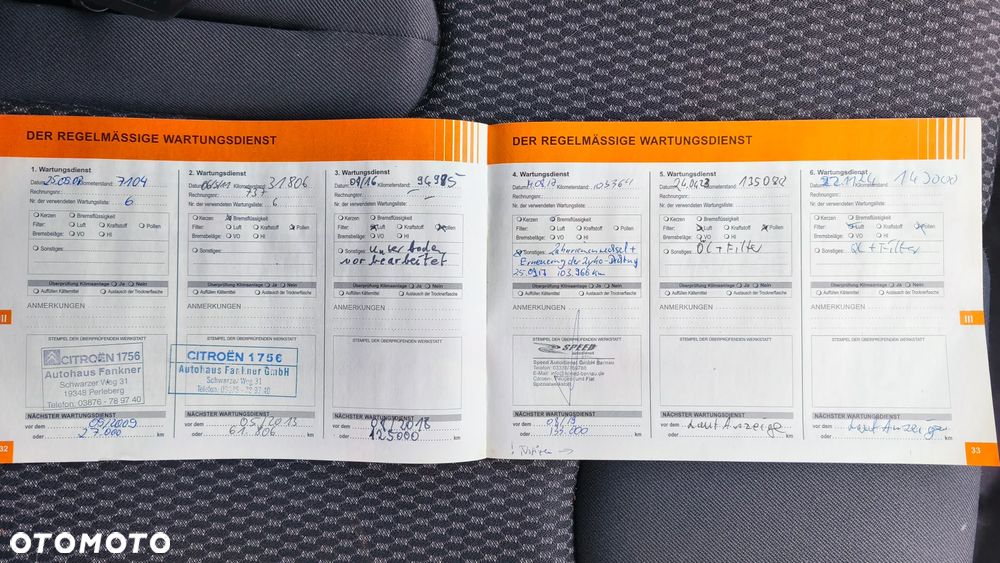 DER REGELMÄSSIGE WARTUNGSDIENST
1. Wartungsdienst
Datum: 25.09.07 Kilometerstand: 7104
Rechnungsnr.:
Nr. der verwendeten Wartungsliste: 6
Kerzen Bremsflüssigkeit
Filter: Luft Kraftstoff Pollen
Bremsbeläge: VO HI
Sonstiges:
Überprüfung Klimaanlage Ja Nein
Auffüllen Kältemittel Austausch der Trocknerflasche
ANMERKUNGEN
STEMPEL DER ÜBERPRÜFENDEN WERKSTATT
CITROËN 1756
Autohaus Fankner
Schwarzer Weg 31
19348 Perleberg
Telefon: 03876 - 78 97 40
NÄCHSTER WARTUNGSDIENST
vor dem 09/2009
oder 27.000 km
2. Wartungsdienst
Datum: Kilometerstand: 31806
Rechnungsnr.: 737
Nr. der verwendeten Wartungsliste: 6
Kerzen Bremsflüssigkeit
Filter: Luft Kraftstoff Pollen
Bremsbeläge: VO HI
Sonstiges:
Überprüfung Klimaanlage Ja Nein
Auffüllen Kältemittel Austausch der Trocknerflasche
ANMERKUNGEN
STEMPEL DER ÜBERPRÜFENDEN WERKSTATT
CITROËN 1756
Autohaus Fankner GmbH
Schwarzer Weg 31
Telefon: 03876 - 78 97 40
NÄCHSTER WARTUNGSDIENST
vor dem 05/2013
oder 61.806 km
3. Wartungsdienst
Datum: 09/16 Kilometerstand: 94985
Rechnungsnr.:
Nr. der verwendeten Wartungsliste:
Kerzen Bremsflüssigkeit
Filter: Luft Kraftstoff Pollen
Bremsbeläge: VO HI
Sonstiges: Unterboden
vorbearbeitet
Überprüfung Klimaanlage Ja Nein
Auffüllen Kältemittel Austausch der Trocknerflasche
ANMERKUNGEN
STEMPEL DER ÜBERPRÜFENDEN WERKSTATT
NÄCHSTER WARTUNGSDIENST
vor dem 08/2018
oder 125000 km
III
32
DER REGELMÄSSIGE WARTUNGSDIENST
4. Wartungsdienst
Datum: Kilometerstand: 103964
Rechnungsnr.:
Nr. der verwendeten Wartungsliste:
Kerzen Bremsflüssigkeit
Filter: Luft Kraftstoff Pollen
Bremsbeläge: VO HI
Sonstiges: Zahnriemenwechsel +
Erneuerung der Zylko-Dichtung
25.09.17 103.966 km
Überprüfung Klimaanlage Ja Nein
Auffüllen Kältemittel Austausch der Trocknerflasche
ANMERKUNGEN
STEMPEL DER ÜBERPRÜFENDEN WERKSTATT
SPEED
Speed Autodienst GmbH Bernau
E-Mail: info@speed-bernau.de
Citroen, Peugeot und Fiat
NÄCHSTER WARTUNGSDIENST
vor dem 08/19
oder 133.000 km
5. Wartungsdienst
Datum: 24.04.23 Kilometerstand: 135082
Rechnungsnr.:
Nr. der verwendeten Wartungsliste:
Kerzen Bremsflüssigkeit
Filter: Luft Kraftstoff Pollen
Bremsbeläge: VO HI
Sonstiges: Öl + Filter
Überprüfung Klimaanlage Ja Nein
Auffüllen Kältemittel Austausch der Trocknerflasche
ANMERKUNGEN
STEMPEL DER ÜBERPRÜFENDEN WERKSTATT
NÄCHSTER WARTUNGSDIENST
vor dem Laut Anzeige
oder km
6. Wartungsdienst
Datum: Kilometerstand: 143000
Rechnungsnr.:
Nr. der verwendeten Wartungsliste:
Kerzen Bremsflüssigkeit
Filter: Luft Kraftstoff Pollen
Bremsbeläge: VO HI
Sonstiges: Öl + Filter
Überprüfung Klimaanlage Ja Nein
Auffüllen Kältemittel Austausch der Trocknerflasche
ANMERKUNGEN
STEMPEL DER ÜBERPRÜFENDEN WERKSTATT
NÄCHSTER WARTUNGSDIENST
vor dem Laut Anzeige
oder km
III
33
OTOMOTO